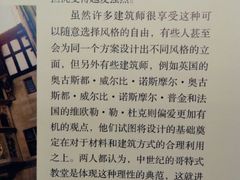 虽然许多建筑师很享受这种可
以随意选择风格的自由，有些人甚至
会为同一个方案设计出不同风格的立
面，但另外有些建筑师，例如英国的
奥古斯都·威尔比·诺斯摩尔·奥
古斯都·威尔比·诺斯摩尔·普金和法
国的维欧勒·勒·杜克则偏爱更加有
机的观点，他们试图将设计的基础奠
定在对于材料和建筑方式的合理利用
之上。两人都认为，中世纪的哥特式
教堂是体现这种理性的典范，这就进